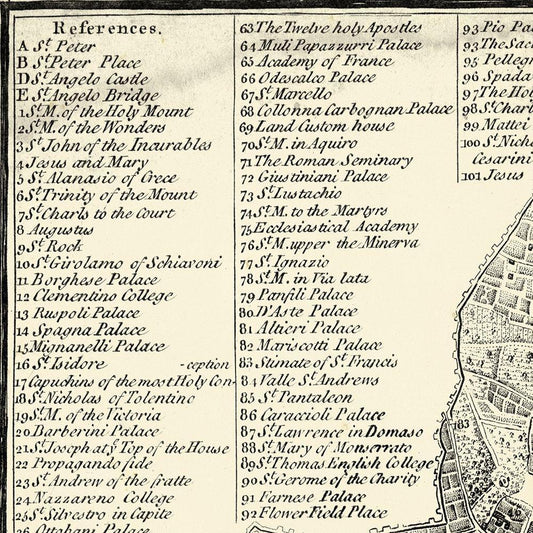 References.
A S.t Peter
B S.t Peter Place
D S.t Angelo Castle
E S.t Angelo Bridge
1 S.t M. of the Holy Mount
2 S.t M. of the Wonders
3 S.t John of the Incurables
4 Jesus and Mary
5 S.t Alanasio of Crece
6 S.t Trinity of the Mount
7 S.t Charls to the Court
8 Augustus
9 S.t Rock
10 S.t Girolamo of Schiavoni
11 Borghese Palace
12 Clementino College
13 Ruspoli Palace
14 Spagna Palace
15 Mignanelli Palace
16 S.t Isidore -ception
17 Capuchins of the most Holy Con-
18 S.t Nicholas of Tolentino
19 S.t M. of the Victoria
20 Barberini Palace
21 S.t Joseph at y.e Top of the House
22 Propagando fide
23 S.t Andrew of the fratte
24 Nazzareno College
25 S.t Silvestro in Capite
26 Ottobani Palace
63 The Twelve holy Apostles
64 Muli Papazzurri Palace
65 Academy of France
66 Odescalco Palace
67 S.t Marcello
68 Collonna Carbognan Palace
69 Land Custom house
70 S.t M. in Aquiro
71 The Roman Seminary
72 Giustiniani Palace
73 S.t Lustachio
74 S.t M. to the Martyrs
75 Ecclesiastical Academy
76 S.t M. upper the Minerva
77 S.t Ignazio
78 S.t M. in Via lata
79 Panfili Palace
80 D'Aste Palace
81 Altieri Palace
82 Mariscotti Palace
83 Stimate of S.t Francis
84 Valle S.t Andrews
85 S.t Pantaleon
86 Caraccioli Palace
87 S.t Lawrence in Domaso
88 S.t Mary of Monserrato
89 S.t Thomas English College
90 S.t Gerome of the Charity
91 Farnese Palace
92 Flower Field Place
93 Pio Pa
93 The Sac
95 Pellegr
96 Spada
97 The Hol
98 S.t Charl
99 Mattei
100 S.t Nich
Cesarini
101 Jesus
183